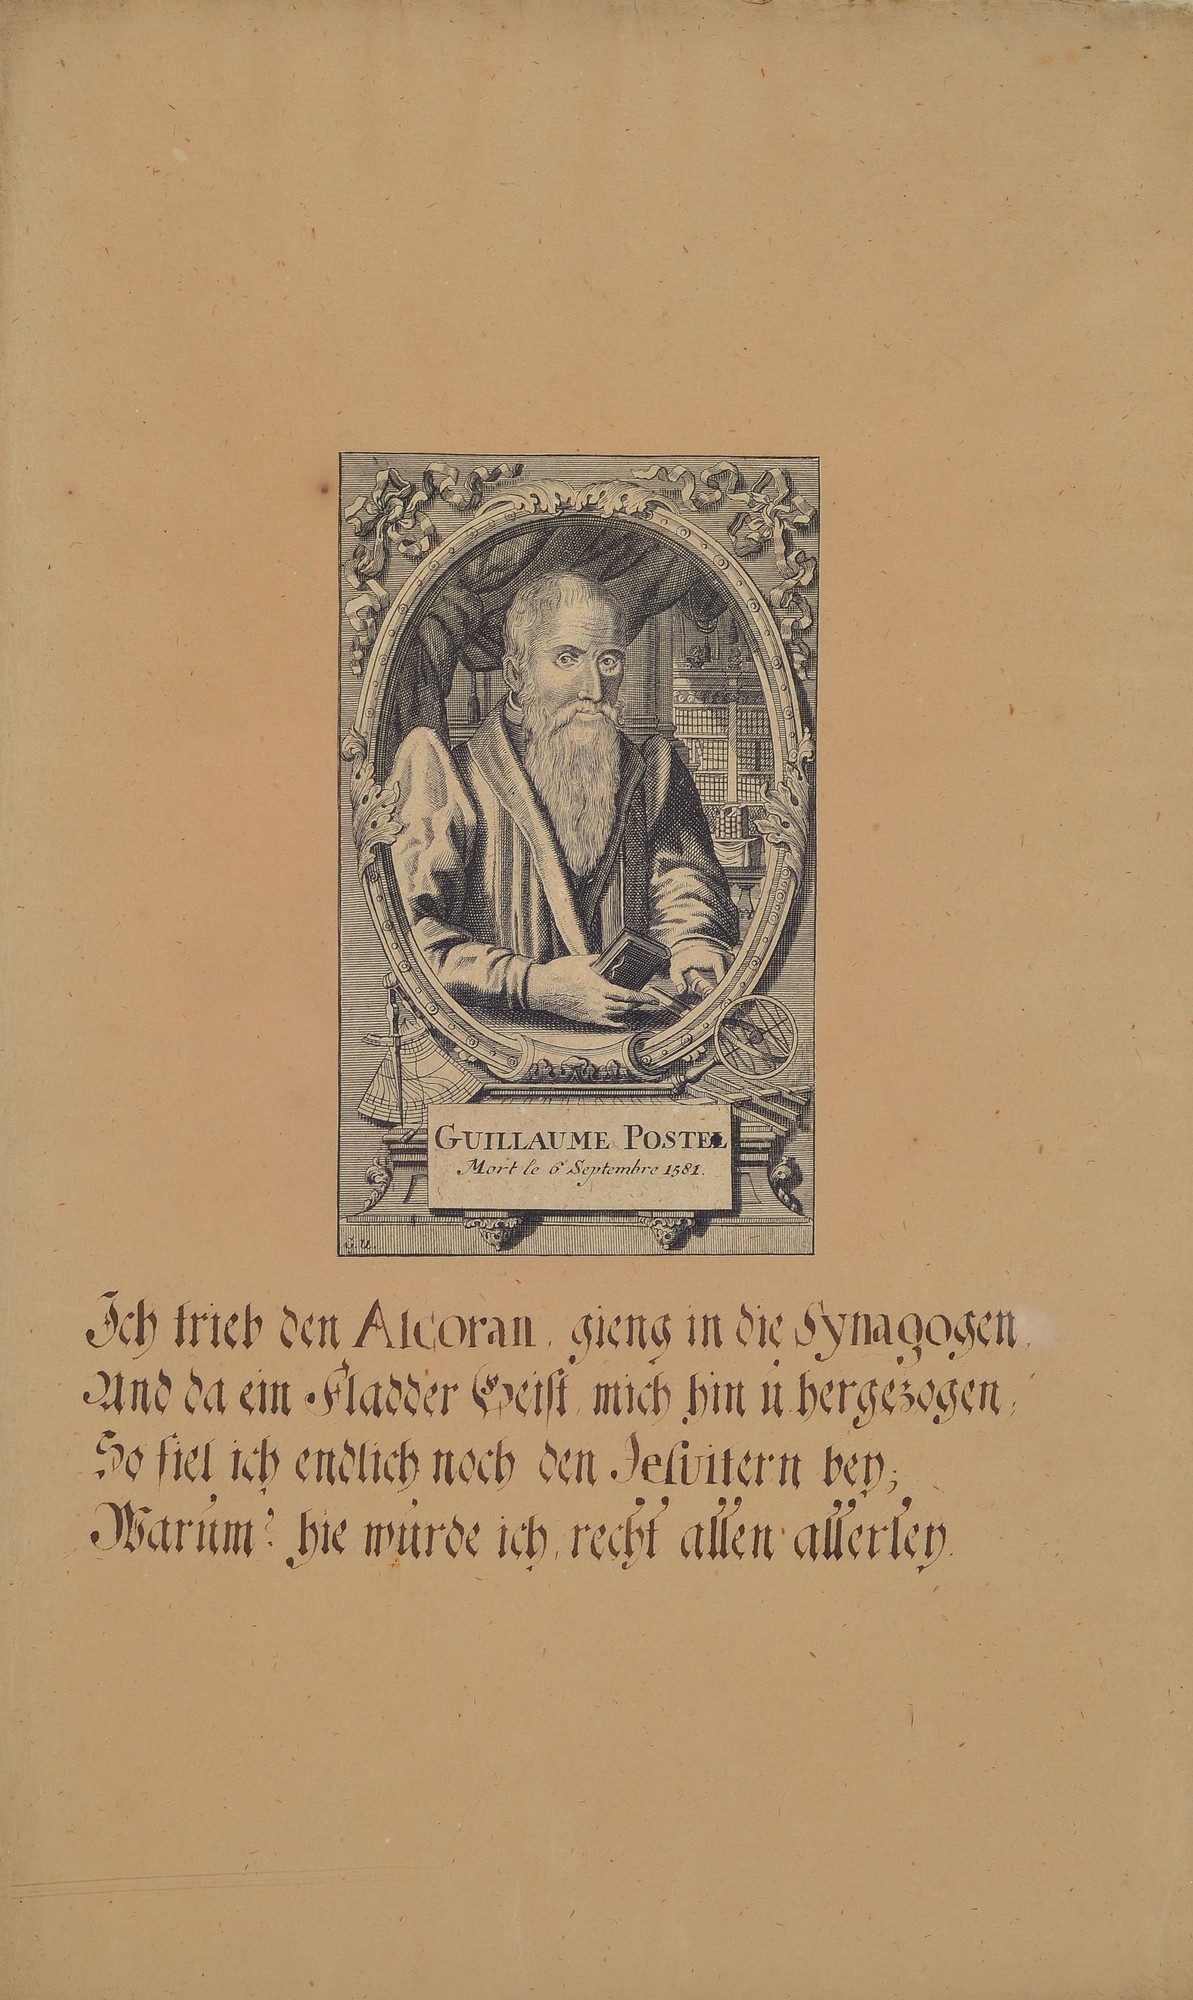 GUILLAUME POSTEL
Mort le 6 Septembre 1581.
G.U.
Ich trieb den Alcoran, gieng in die Synagogen,
Und da ein Fladder Geist mich hin u hergezogen,
So fiel ich endlich noch den Jesuitern bey;
Warum? hie wurde ich, recht allen allerley.